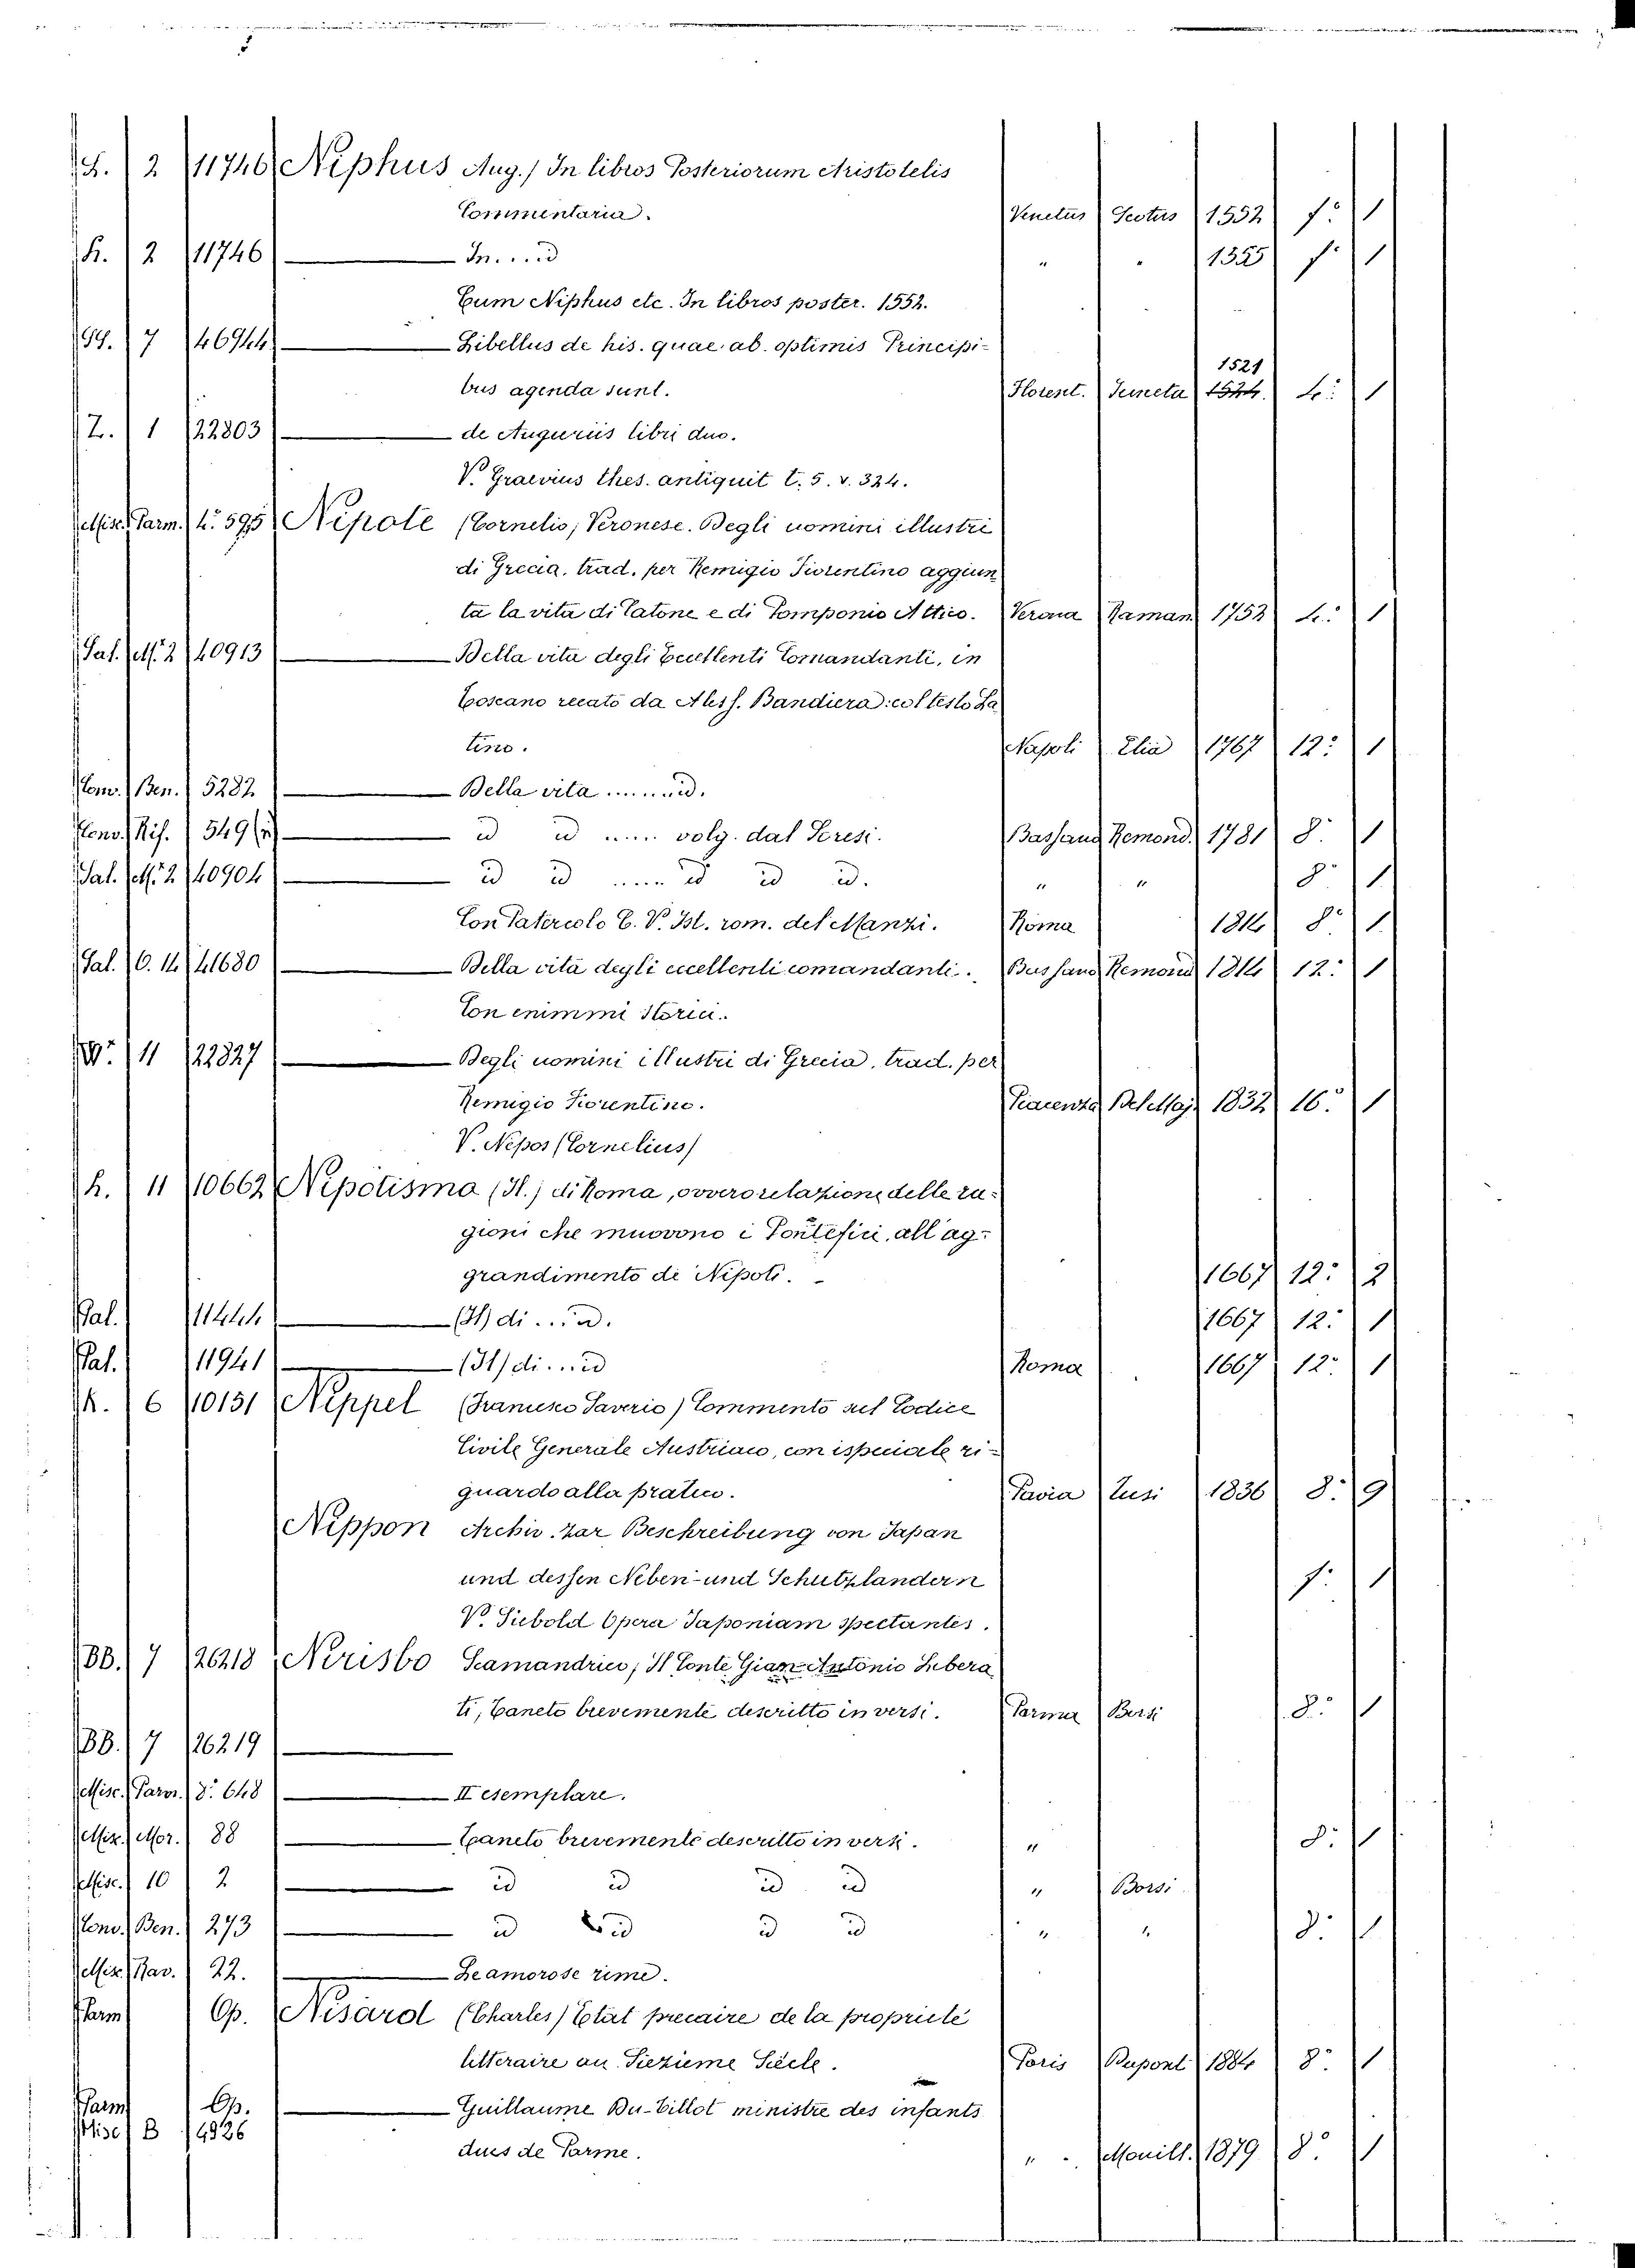 S. 2 11746 Niphus Aug.) In libros Posteriorum Aristotelis
Commentaria. Venetus Scotus 1552 f: 1
S. 2 11746 — In....id " " 1555 f: 1
Cum Niphus etc. In libros poster. 1552.
7 46944 — Libellus de his. quae ab. optimis Principi-
1521
bus agenda sunt. Florent. Juncta 1524. 4: 1
Z. 1 22803 — de Auguriis libri duo.
V. Graevius thes. antiquit t. 5. v. 324.
Misc. Parm. 4: 595 Nipote (Cornelio, Veronese. Degli uomini illustri
di Grecia, trad. per Remigio Fiorentino aggiun
ta la vita di Catone e di Pomponio Attico. Verona Raman 1753 4: 1
Pal. M: 2 40913 — Della vita degli Eccellenti Comandanti, in
Toscano recato da Aless. Bandiera: col testo La
tino. Napoli Elia 1767 12: 1
Conv. Ben. 5282 — Della vita ...... id.
Conv. Rif. 549 — id id .... volg. dal Soresi. Bassano Remond. 1781 8: 1
Pal. M: 2 40904 — id id .... id id id. " " 8: 1
Con Patercolo C. V. Ist. rom. del Manzi. Roma 1814 8: 1
Pal. O. 14 41680 — Della vita degli eccellenti comandanti. Bassano Remond 1814 12: 1
Con enimmi storici.
11 22827 — Degli uomini illustri di Grecia, trad. per
Remigio Fiorentino. Piacenza Del Maj. 1832 16: 1
V. Nepos (Cornelius)
h. 11 10662 Nipotismo (Il) di Roma, ovvero relazione delle ra-
gioni che muovono i Pontefici, all'ag-
grandimento de Nipoti. 1667 12: 2
Pal. 11444 — (Il) di ... id. 1667 12: 1
Pal. 11941 — (Il) di .... id Roma 1667 12: 1
6 10131 Nippel (Francesco Saverio) Commento sul Codice
Civile Generale Austriaco, con ispeciale ri-
guardo alla pratica. Pavia Fusi 1836 8: 9
Nippon Archiv. zar Beschreibung von Japan
und dessen Neben- und Schutzländern f: 1
V. Siebold Opera Japoniam spectantes.
BB. 7 26218 Nirisbo Scamandrico, Il Conte Gian Antonio Libera
ti, Caneto brevemente descritto in versi. Parma Borsi 8: 1
BB. 7 26219 —
Misc. Parm. 8: 648 — II esemplare.
Misc. Mor. 88 — Caneto brevemente descritto in versi. " 8: 1
Misc. 10 2 — id id id id " Borsi
Conv. Ben. 273 — id id id id " " 8: 1
Misc. Rav. 22. — Le amorose rime.
Parm Op. Nisard (Charles) Etat precaire de la propriete
litteraire au Siezieme Siecle. Paris Dupont 1884 8: 1
Parm Op. — Guillaume Du-Tillot ministre des infants
Misc B 4926
ducs de Parme. " Monill. 1879 8: 1